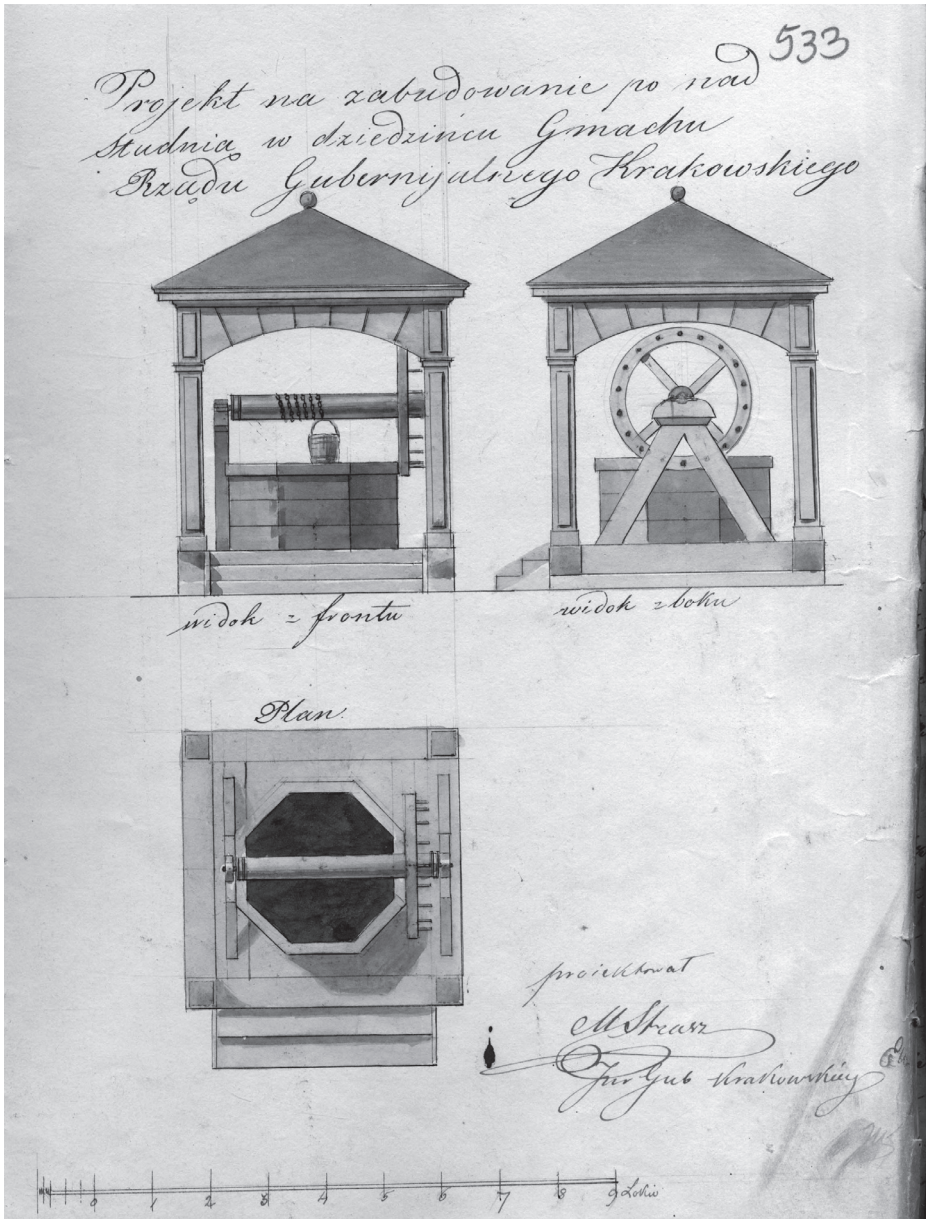 533
Projekt na zabudowanie po nad
studnią w dziedzińcu Gmachu
Rządu Gubernijalnego Krakowskiego
widok z frontu
widok z boku
Plan.
proiektował
M Strasz
Gub Krakowskiey
0 1 2 3 4 5 6 7 8 9 Łokci